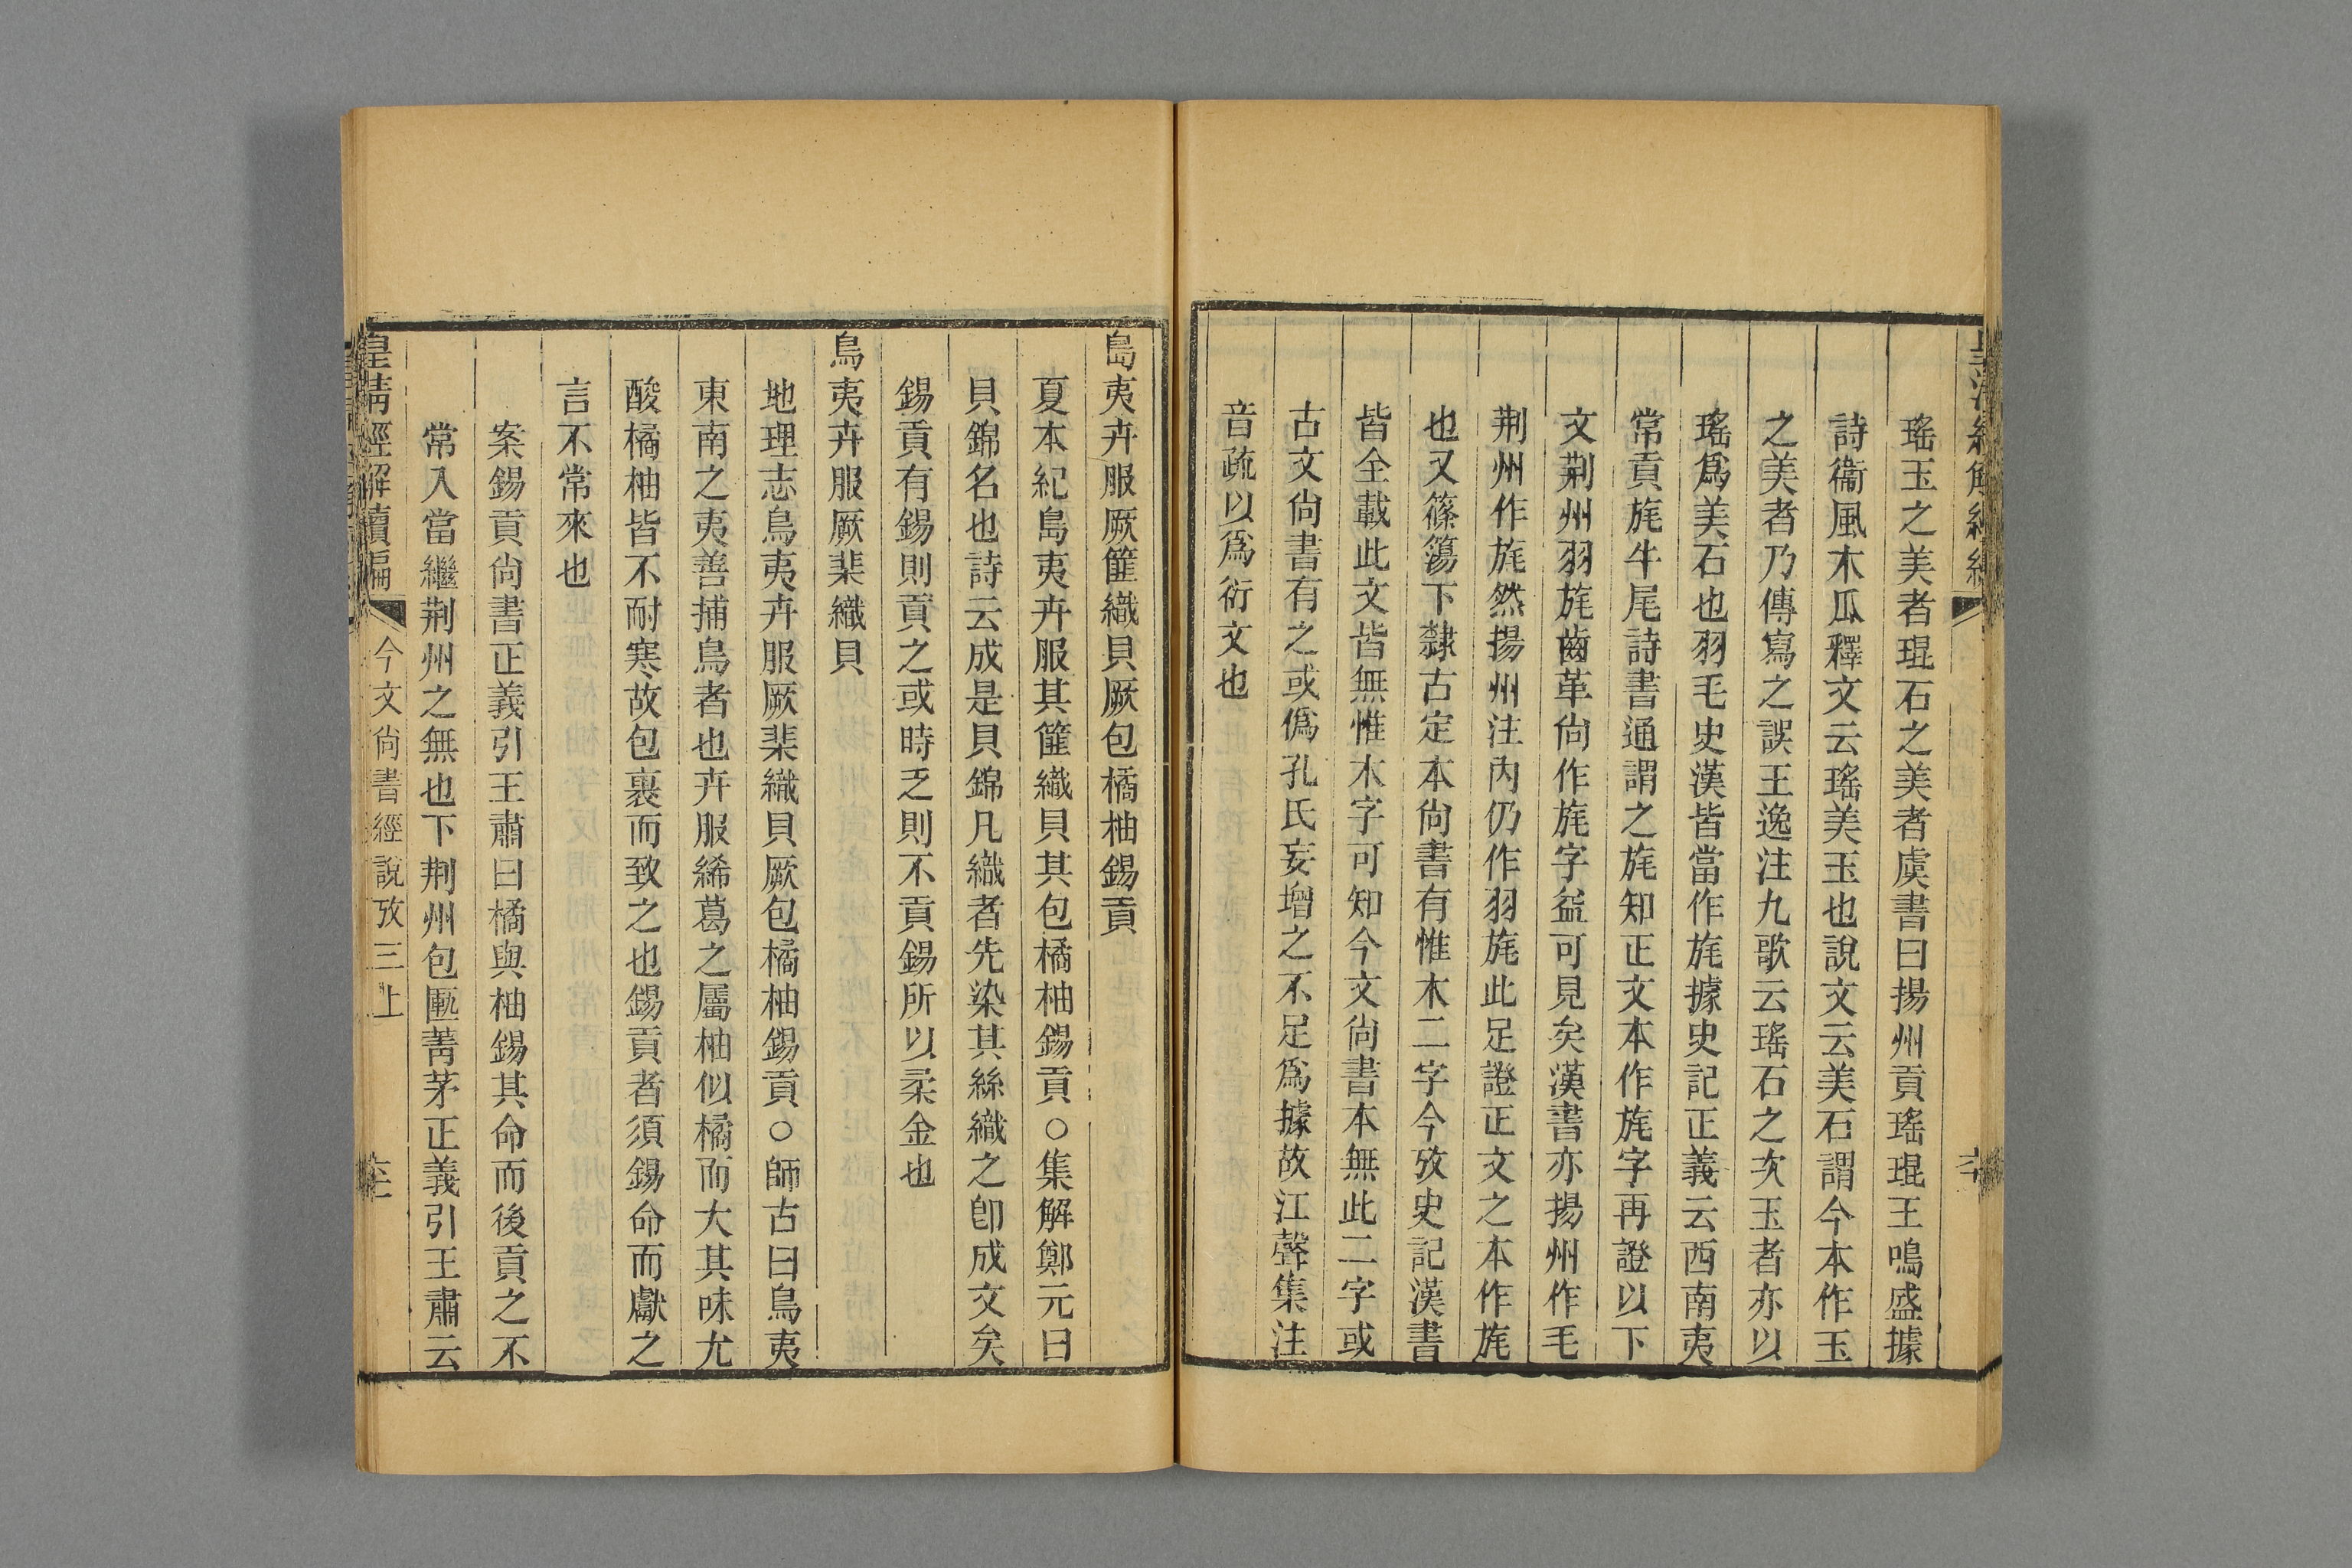 瑤玉之美者琨石之美者虞書曰揚州貢瑤琨王鳴盛據
詩衞風木瓜釋文云瑤美玉也說文云美石謂今本作玉
之美者乃傳寫之誤王逸注九歌云瑤石之次玉者亦以
瑤爲美石也羽毛史漢皆當作旄據史記正義云西南夷
常貢旄牛尾詩書通謂之旄知正文本作旄字再證以下
文荆州羽旄齒革尙作旄字益可見矣漢書亦揚州作毛
荆州作旄然揚州注內仍作羽旄此足證正文之本作旄
也又篠簜下隸古定本尙書有惟木二字今攷史記漢書
皆全載此文皆無惟木字可知今文尙書本無此二字或
古文尙書有之或僞孔氏妄增之不足爲據故江聲集注
音疏以爲衍文也
島夷卉服厥篚織貝厥包橘柚錫貢
夏本紀島夷卉服其篚織貝其包橘柚錫貢○集解鄭元曰
貝錦名也詩云成是貝錦凡織者先染其絲織之卽成文矣
錫貢有錫則貢之或時乏則不貢錫所以柔金也
鳥夷卉服厥棐織貝
地理志鳥夷卉服厥棐織貝厥包橘柚錫貢○師古曰鳥夷
東南之夷善捕鳥者也卉服絺葛之屬柚似橘而大其味尤
酸橘柚皆不耐寒故包裹而致之也錫貢者須錫命而獻之
言不常來也
案錫貢尙書正義引王肅曰橘與柚錫其命而後貢之不
常入當繼荆州之無也下荆州包匭菁茅正義引王肅云
皇清經解續編
今文尙書經說攷三上